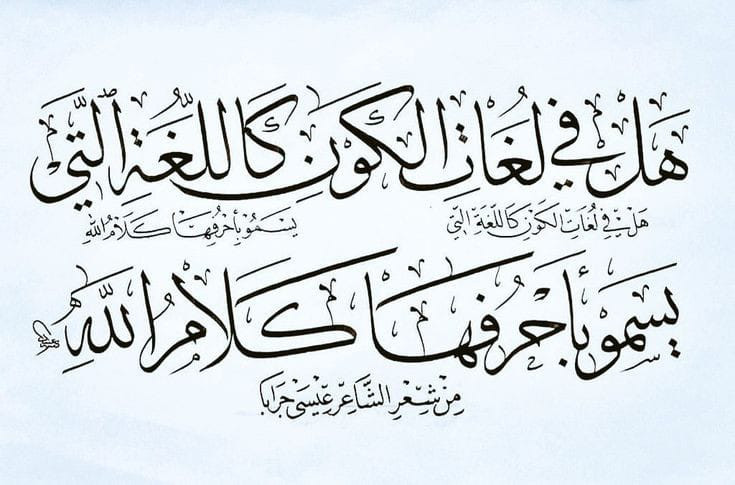 هَلْ فِي لُغَاتِ الكَوْنِ كَاللُّغَةِ الَّتِي
هَلْ فِي لُغَاتِ الكَوْنِ كَاللُّغَةِ الَّتِي يَسْمُو بِأَحْرُفِهَا كَلَامُ اللهِ
يَسْمُو بِأَحْرُفِهَا كَلَامُ اللهِ
مِنْ شِعْرِ الشَّاعِرِ عِيسَى جَرَابَا